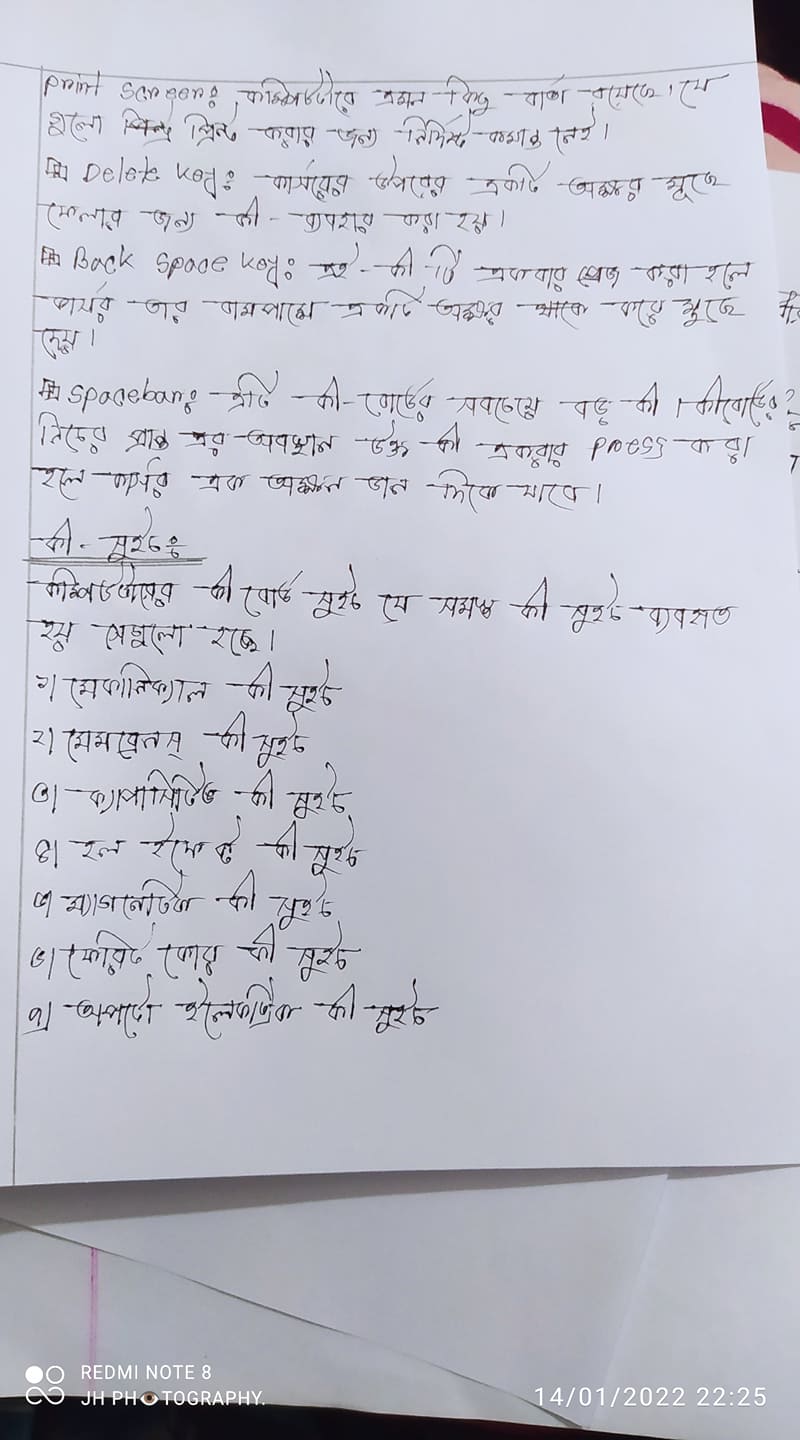 Print Screen: কম্পিউটারে এমন কিছু বার্তা রয়েছে। যে
গুলো প্রিন্ট করার জন্য নির্দিষ্ট কমান্ড নেই।
Delete Key: কার্সরের উপরের একটি অক্ষর মুছে
ফেলার জন্য কী-ব্যবহার করা হয়।
Back Space Key: এই-কী টি একবার প্রেস করা হলে
কার্সর তার বামপাশে একটি অক্ষর করে মুছে
দেয়।
Spacebar: এটি কী-বোর্ডের সবচেয়ে বড় কী। কীবোর্ডের
নিচের প্রান্ত এর অবস্থান উক্ত কী একবার press করা
হলে কার্সর এক অক্ষর ডান দিকে যাবে।
কী-সুইচঃ
কম্পিউটারের কী বোর্ড সুইচ যে সমস্ত কী সুইচ ব্যবহৃত
হয় সেগুলো হচ্ছে।
১। মেকানিক্যাল কী সুইচ
২। মেমব্রেনস্ কী সুইচ
৩। ক্যাপাসিটিভ কী সুইচ
৪। হল ইফেক্ট কী সুইচ
৫। ম্যাগনেটিক কী সুইচ
৬। ফেরাইট কোর কী সুইচ
৭। অপটো ইলেকট্রিক কী সুইচ
REDMI NOTE 8
JH PHOTOGRAPHY.
14/01/2022 22:25